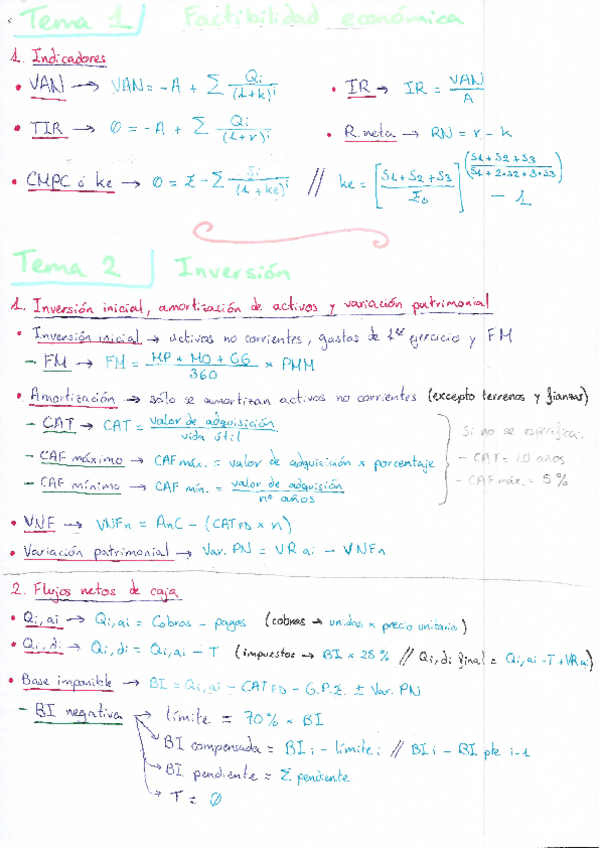 Tema 1 Factibilidad económica
1. Indicadores
• VAN → VAN = -A + Σ Qi/(1+k)^i • IR → IR = VAN/A
• TIR → 0 = -A + Σ Qi/(1+r)^i • R.neta → RN = r - k
• CMPC ó ke → 0 = I - Σ Si/(1+ke)^i // ke = [(S1+S2+S3)/I0]^((S1+S2+S3)/(S1+2·S2+3·S3)) - 1
Tema 2 Inversión
1. Inversión inicial, amortización de activos y variación patrimonial
• Inversión inicial → activos no corrientes, gastos de 1er ejercicio y FM
- FM → FM = (MP + MO + GG)/360 × PMM
• Amortización → sólo se amortizan activos no corrientes (excepto terrenos y fianzas)
- CAT → CAT = valor de adquisición/vida útil
Si no se especifica:
- CAF máximo → CAF máx. = valor de adquisición × porcentaje
- CAT = 10 años
- CAF mínimo → CAF mín. = valor de adquisión/nº años
- CAF máx. = 5%
• VNF → VNFn = AnC - (CATFD × n)
• Variación patrimonial → Var. PN = VR ai - VNFn
2. Flujos netos de caja
• Qi,ai → Qi,ai = Cobros - pagos (cobros → unidas × precio unitario)
• Qi,di → Qi,di = Qi,ai - T (impuestos → BI × 25% // Qi,di final = Qi,ai - T + VRai)
• Base imponible → BI = Qi,ai - CATFD - G.P.E. ± Var. PN
- BI negativa → límite = 70% × BI
→ BI compensada = BI i - límite i // BI i - BI pte i-1
→ BI pendiente = Σ pendiente
→ T = 0